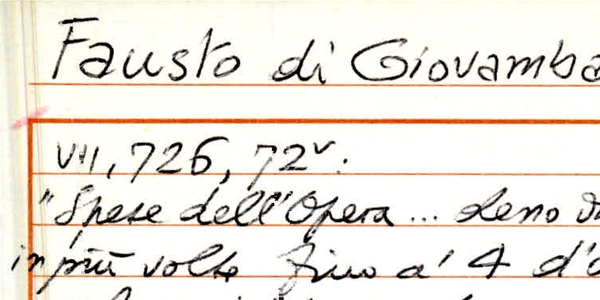 Fausto di Giovamba
VII, 726, 72v:
"Spese dell'Opera ... deno
in più volte fino a' 4 d'o